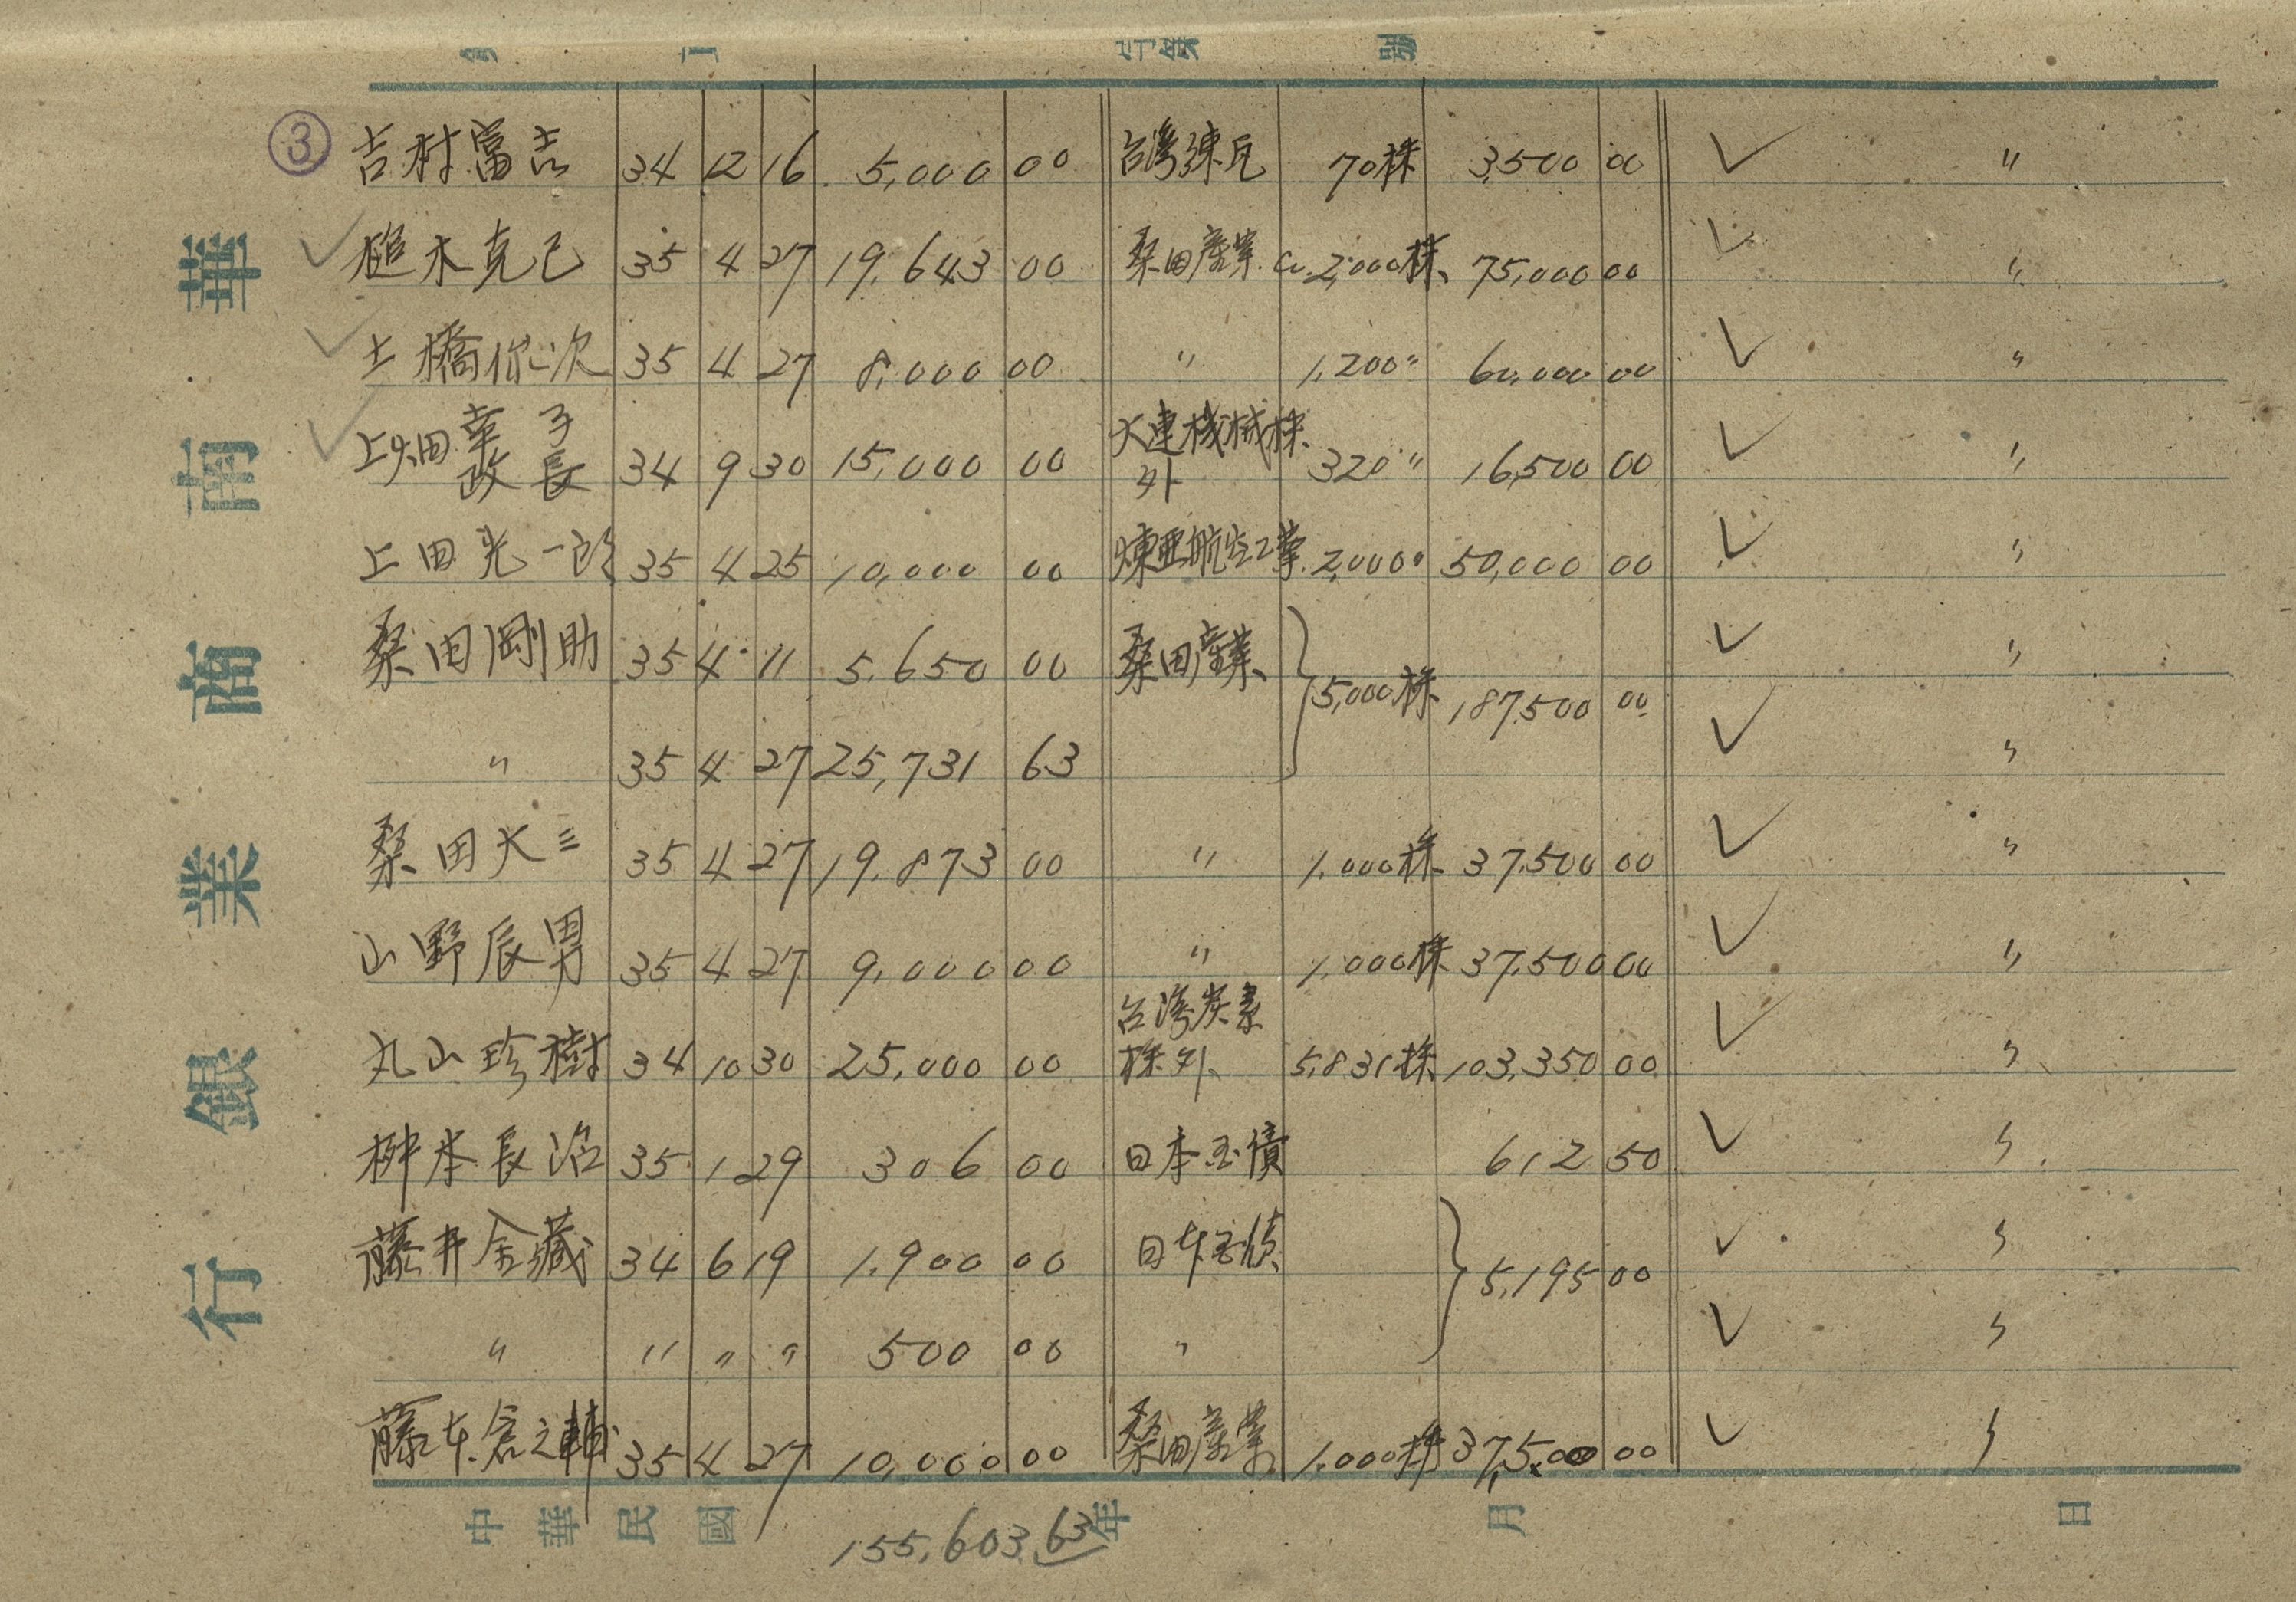 ③ 吉村富吉 34 12 16 5,000 00 台湾煉瓦 70株 3,500 00 ✓ 〃
✓ 槌木克己 35 4 27 19,643 00 桑田産業 2,000株 75,000 00 ✓ 〃
✓ 土橋弥次 35 4 27 8,000 00 〃 1,200〃 60,000 00 ✓ 〃
✓ 上畑 幸子 政長 34 9 30 15,000 00 大連機械株外 320〃 16,500 00 ✓ 〃
上田光一郎 35 4 25 10,000 00 航空工業 2,000〃 50,000 00 ✓ 〃
桑田剛助 35 4 11 5,650 00 桑田産業 5,000株 187,500 00 ✓ 〃
〃 35 4 27 25,731 63 ✓ 〃
桑田大三 35 4 27 19,873 00 〃 1,000株 37,500 00 ✓ 〃
山野辰男 35 4 27 9,000 00 〃 1,000株 37,500 00 ✓ 〃
丸山珍樹 34 10 30 25,000 00 台湾炭素株外 5,831株 103,350 00 ✓ 〃
桝本長治 35 1 29 306 00 日本国債 612 50 ✓ 〃
藤井金蔵 34 6 19 1,900 00 日本国債 5,195 00 ✓ 〃
〃 〃 〃 〃 500 00 〃 ✓ 〃
藤本倉之輔 35 4 27 10,000 00 桑田産業 1,000株 37,500 00 ✓ 〃
155,603.63
中華民國 年 月 日
華南商業銀行